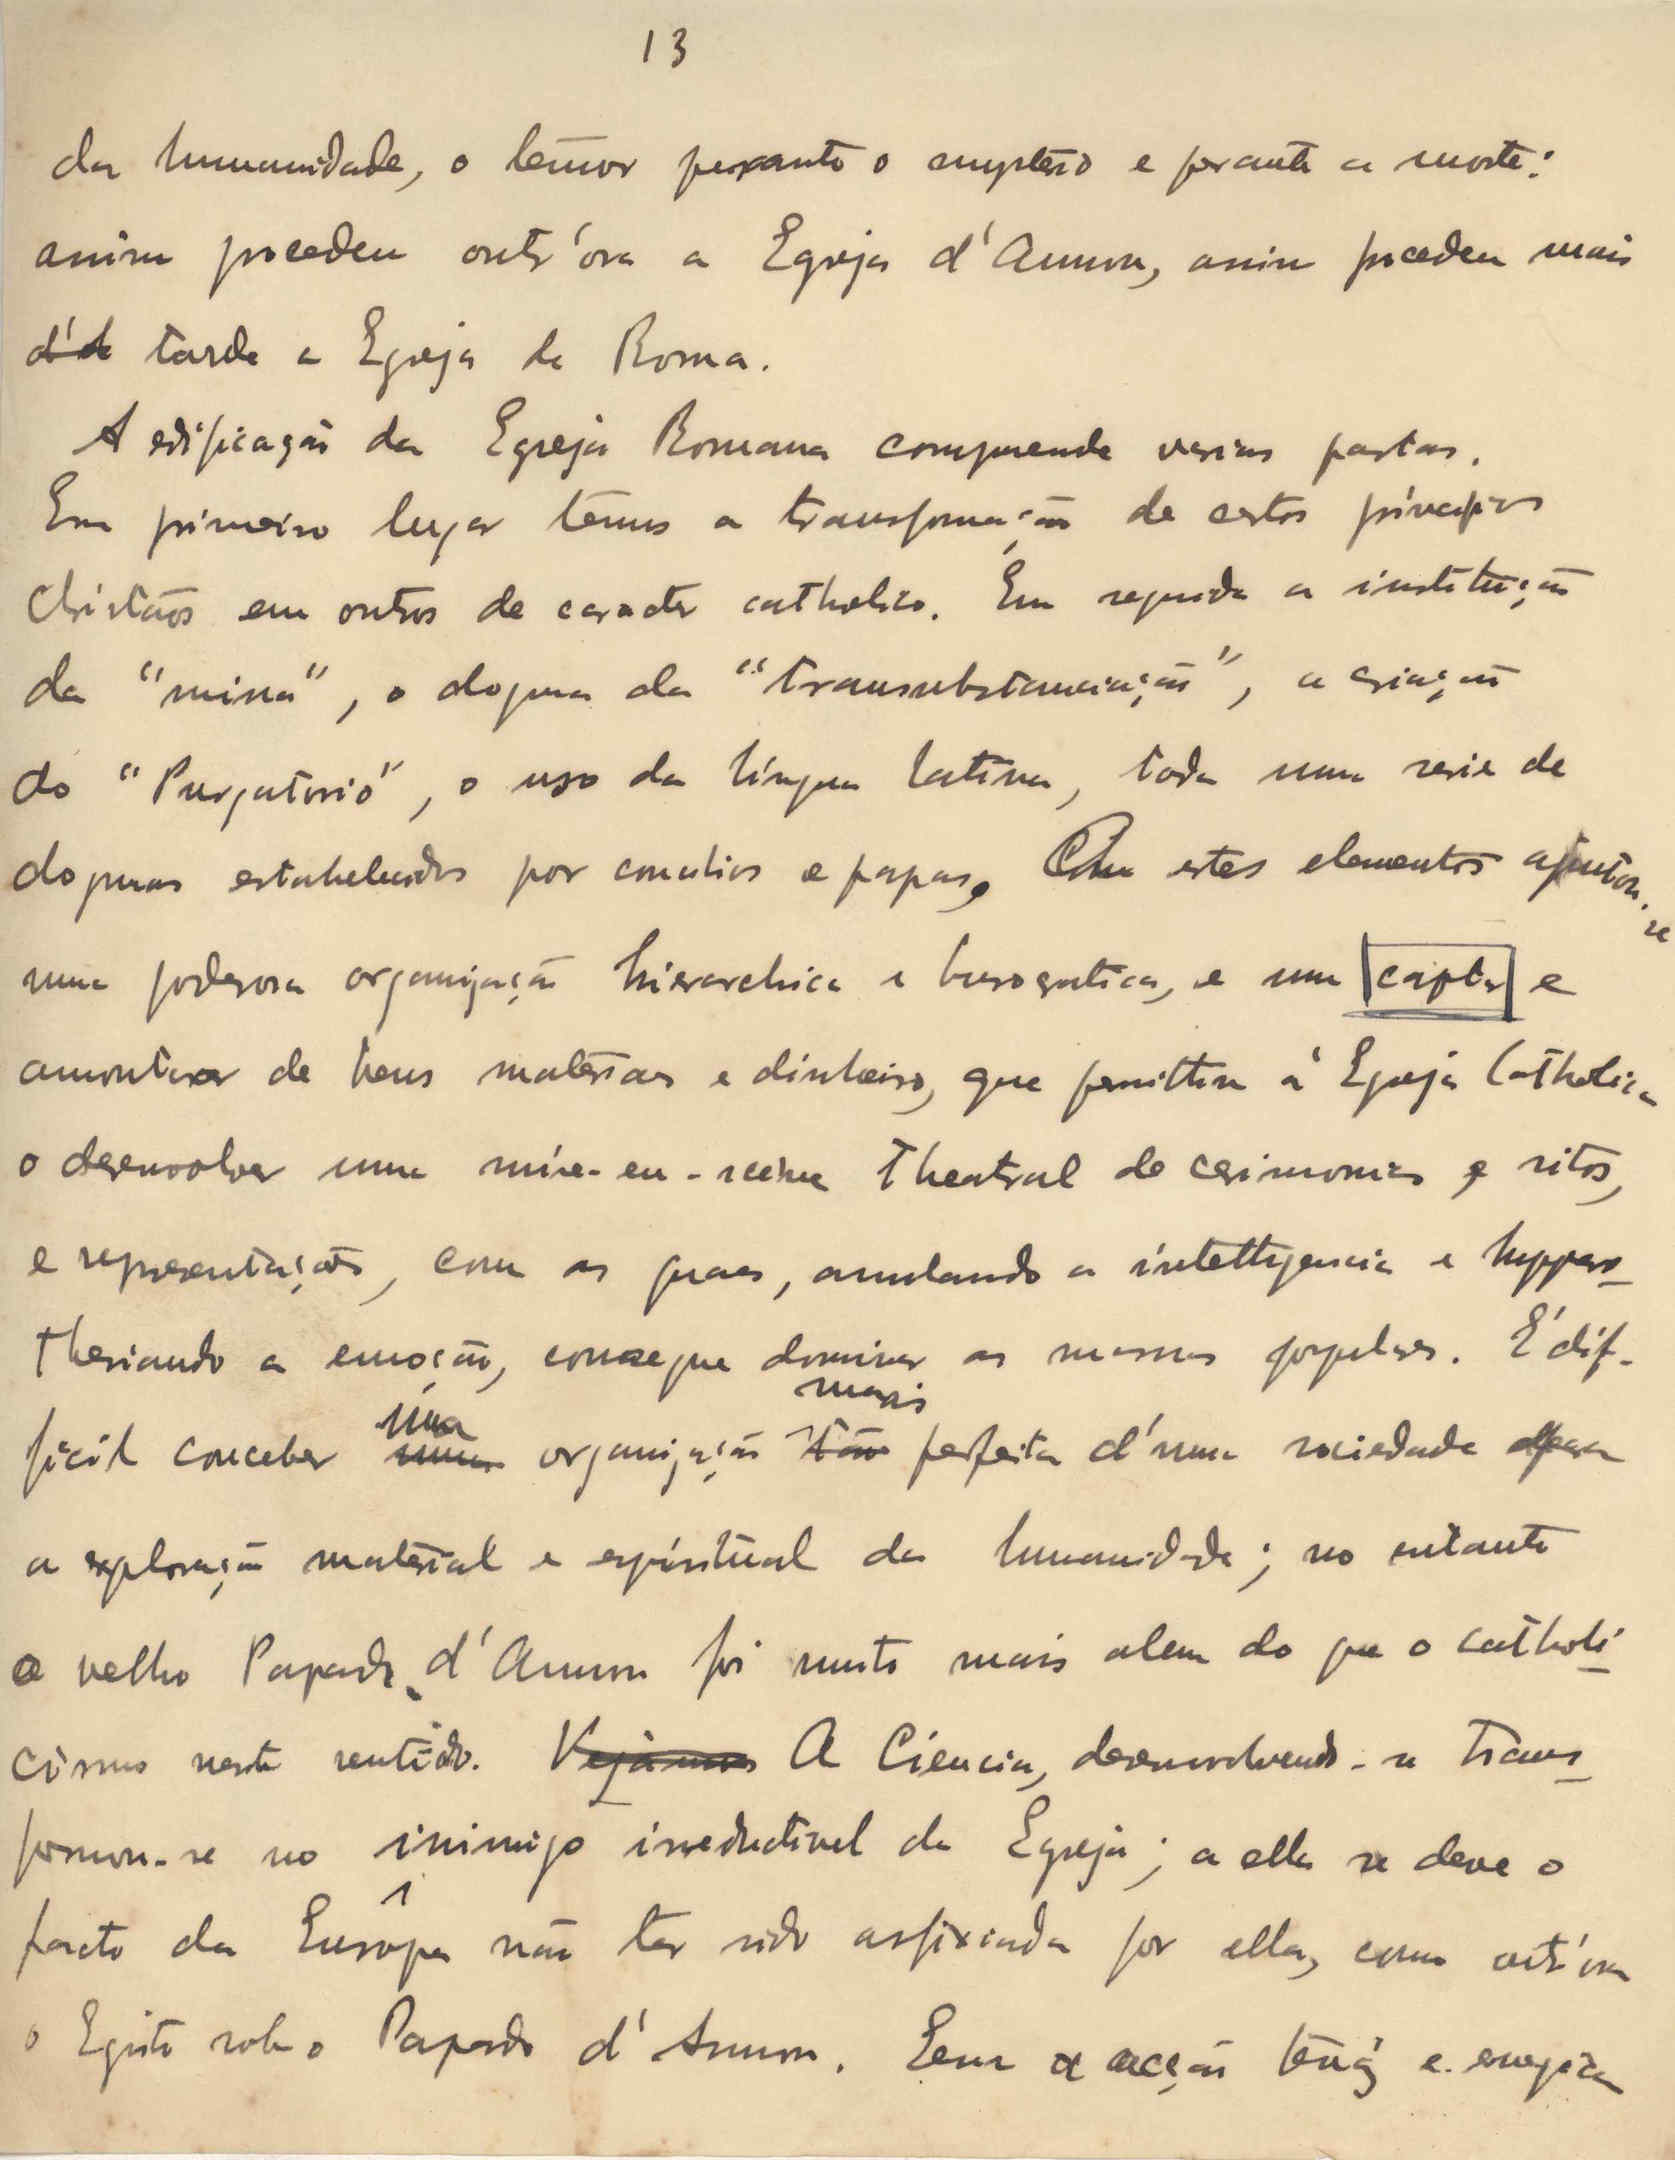 13
da humanidade, o temor perante o mysterio e perante a morte:
assim procedeu outr'ora a Egreja d'Ammon, assim procedeu mais
d'de tarde a Egreja de Roma.
A edificação da Egreja Romana comprehende varias partes.
Em primeiro lugar temos a transformação de certos principios
Christãos em outros de caracter catholico. Em seguida a instituição
da "missa", o dogma da "transubstanciação", a criação
do "Purgatorio", o uso da lingua latina, toda uma serie de
dogmas estabelecidos por concilios e papas. Com estes elementos ajuntou-se
uma poderosa organização hierarchica e burocratica, e um captar e
amontoar de bens materiaes e dinheiro, que permittem á Egreja Catholica
o desenvolver uma mise-en-scène theatral de cerimonias e ritos,
e representações, com as quaes, annulando a intelligencia e hyperes-
thesiando a emoção, consegue dominar as massas populares. É dif-
ficil conceber uma uma organização mais tão perfeita d'uma sociedade para
a exploração material e espiritual da humanidade; no entanto
o velho Papado d'Ammon foi muito mais alem do que o catholi-
cismo neste sentido. Vejamos A Ciencia, desenvolvendo-se trans-
formou-se no inimigo irreductivel da Egreja; a ella se deve o
facto da Európa não ter sido asfixiada por ella, como outr'ora
o Egito sob o Papado d'Ammon. Sem a acção tenaz e energica